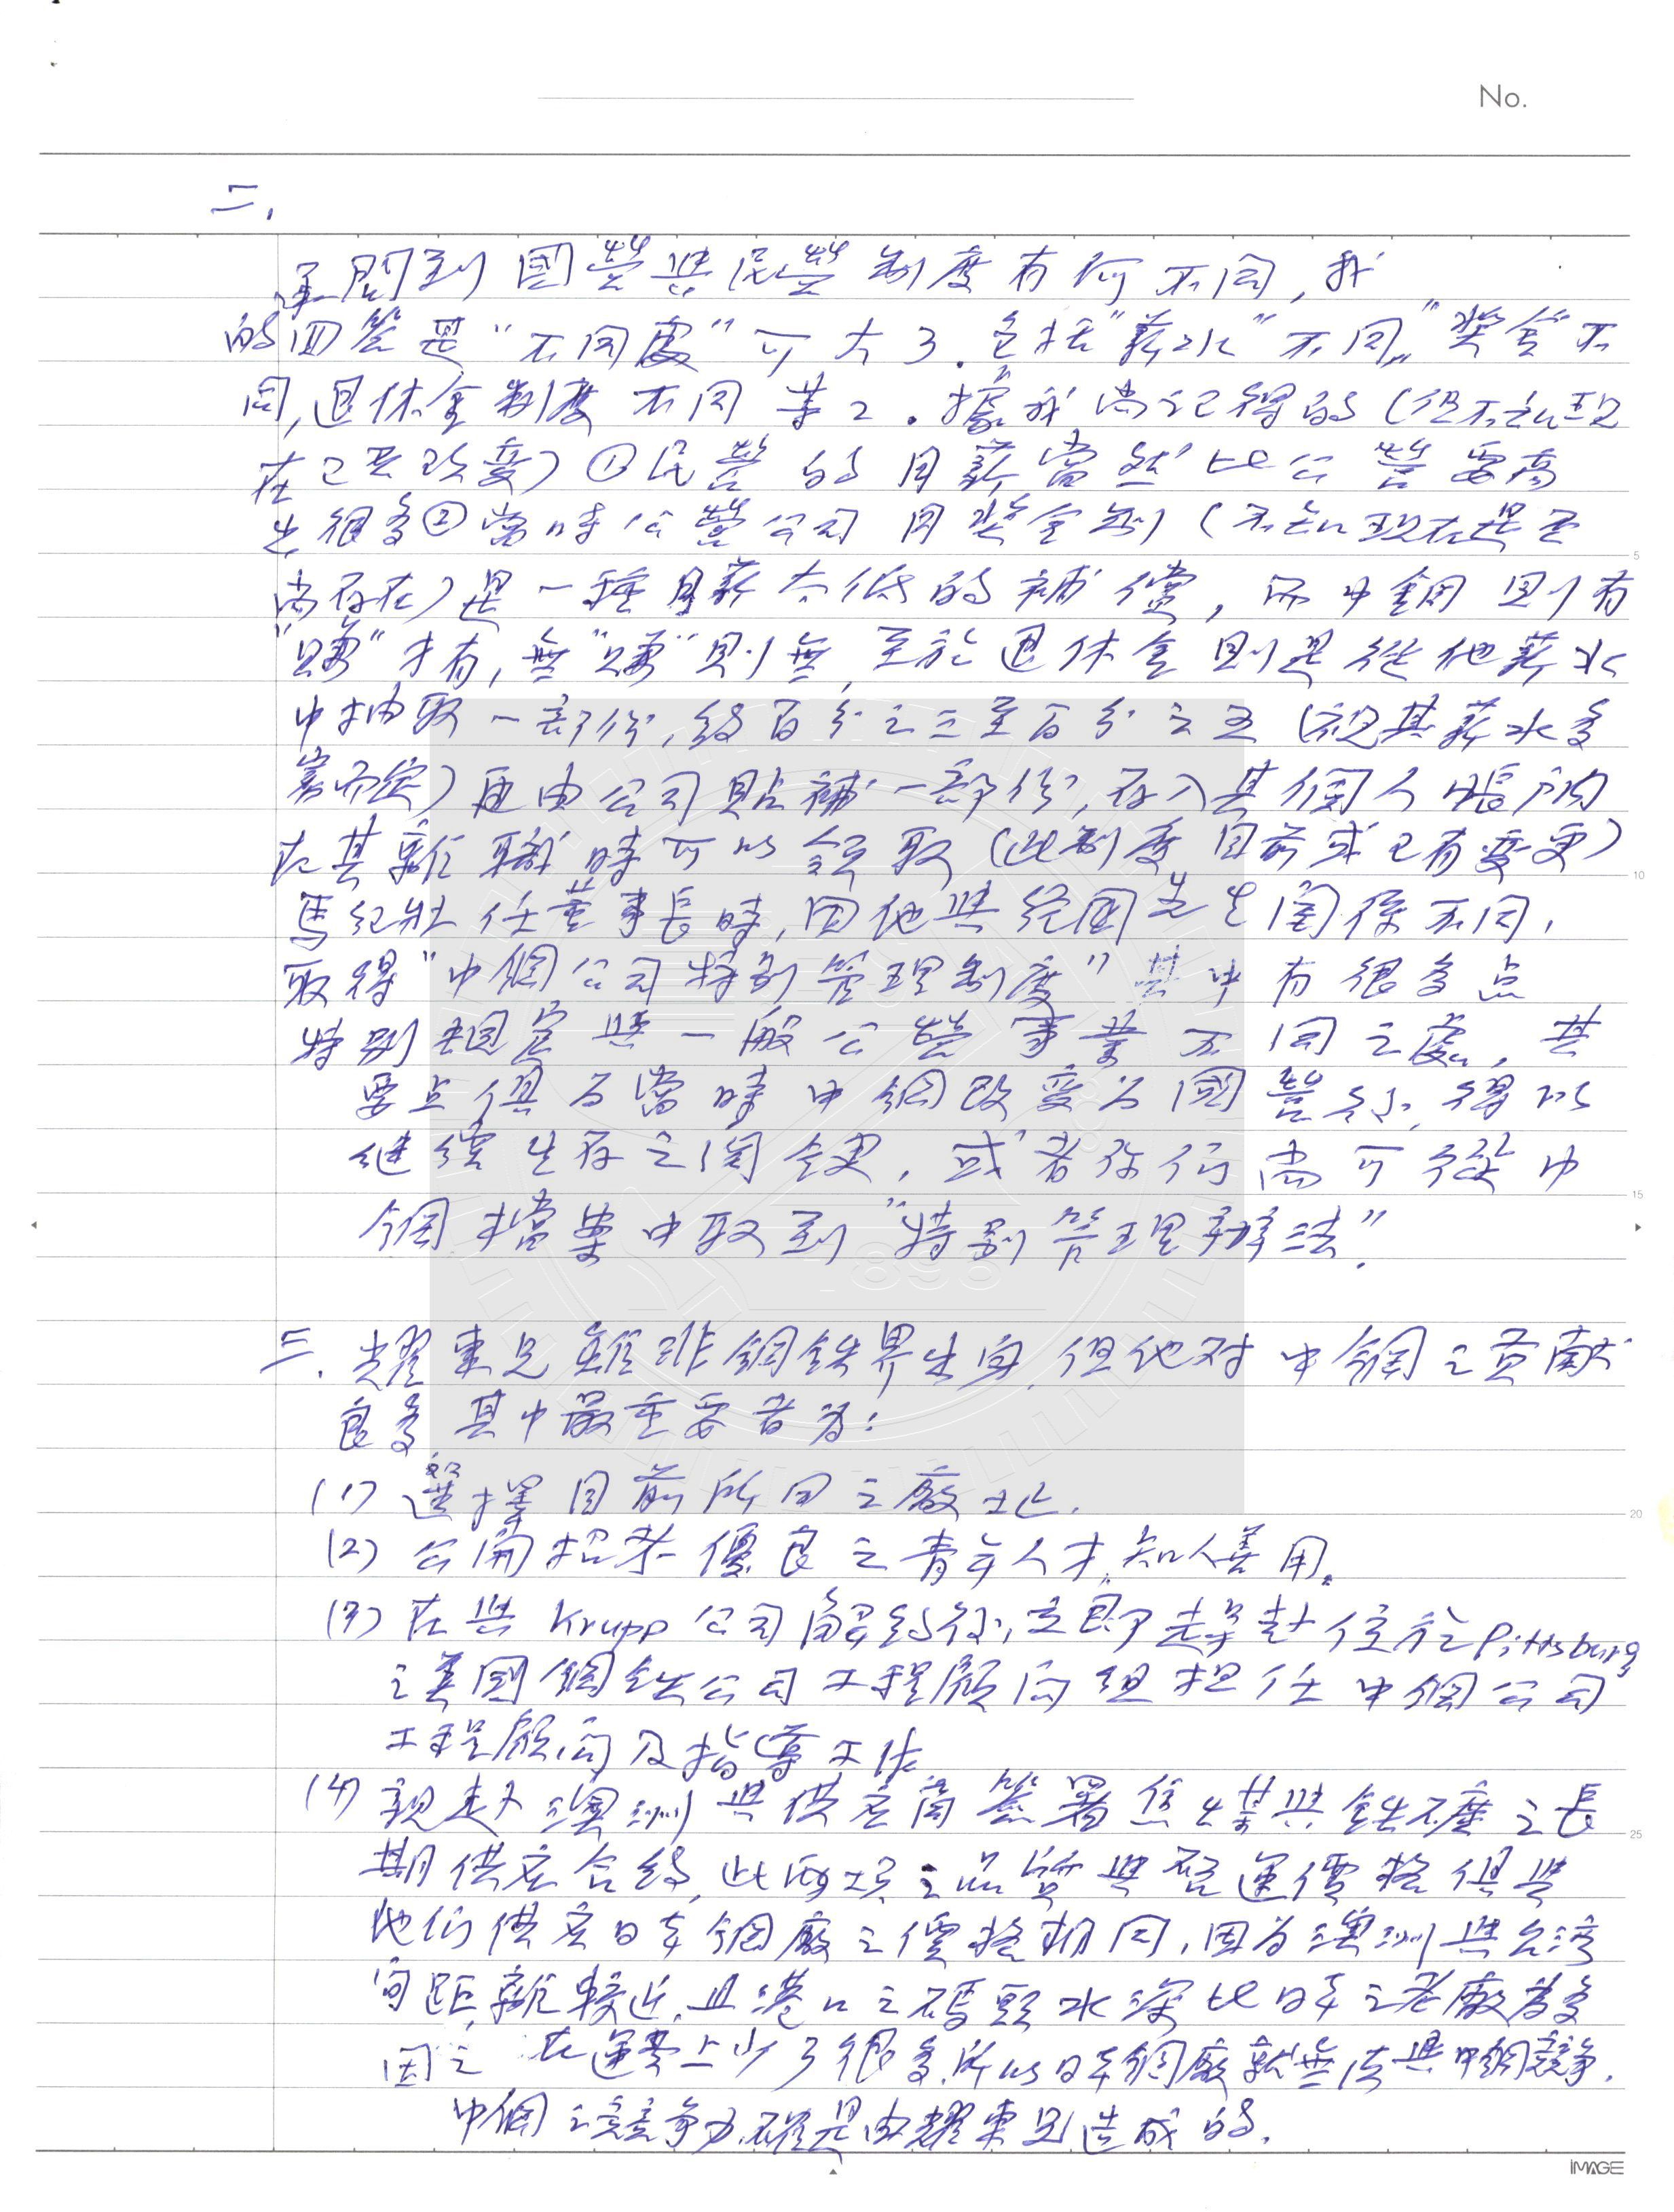 No.
二.
還問到國營與民營制度有何不同,我
的回答是"不同處"可大了.包括"薪水"不同,"獎金"不
同,退休金制度不同等之.據我尚記得的(但不知現
在已否改變)①民營的月薪當然比公營要高
出很多②當時公營公司用獎金制(不知現在是否
尚存在)是一種月薪太低的補償,而中鋼則有
"賺"才有,無"賺"則無,至於退休金則是從他薪水
中抽取一部份,約百分之三至百分之五(視其薪水多
寡而定)再由公司貼補一部份,存入其個人帳戶內
在其離職時可以領取(此制度目前或已有變更)
馬紀壯任董事長時,因他與經國先生関係不同,
取得"中鋼公司特別管理制度"其中有很多点
特別規定與一般公營事業不同之處,其
要点俱為當時中鋼改變為國營後,得以
继續生存之関鍵,或者你们尚可從中
鋼檔案中取到"特別管理辦法".
三.耀東兄雖非鋼鉄界出身,但他对中鋼之貢献
良多,其中最重要者为:
(1)選擇目前所用之廠址.
(2)公開招考優良之青年人才,知人善用.
(3)在與Krupp公司解約後,立即走莘赴位於Pittsburg
之美國鋼鉄公司工程顧问組担任中鋼公司
工程顧问及指導工作
(4)親赴澳洲與供应商簽署焦煤與鉄礦之長
期供应合約,此兩項之品質與啓運價格俱與
他们供应日本鋼廠之價格相同,因为澳洲與台湾
间距離較近,且港口之碼頭水深比日本之老廠為多
因之 在運費上少了很多,所以日本鋼廠就無法與中鋼競争.
中鋼之競争力,確是由耀東兄造成的.
5
10
15
20
25
IMAGE